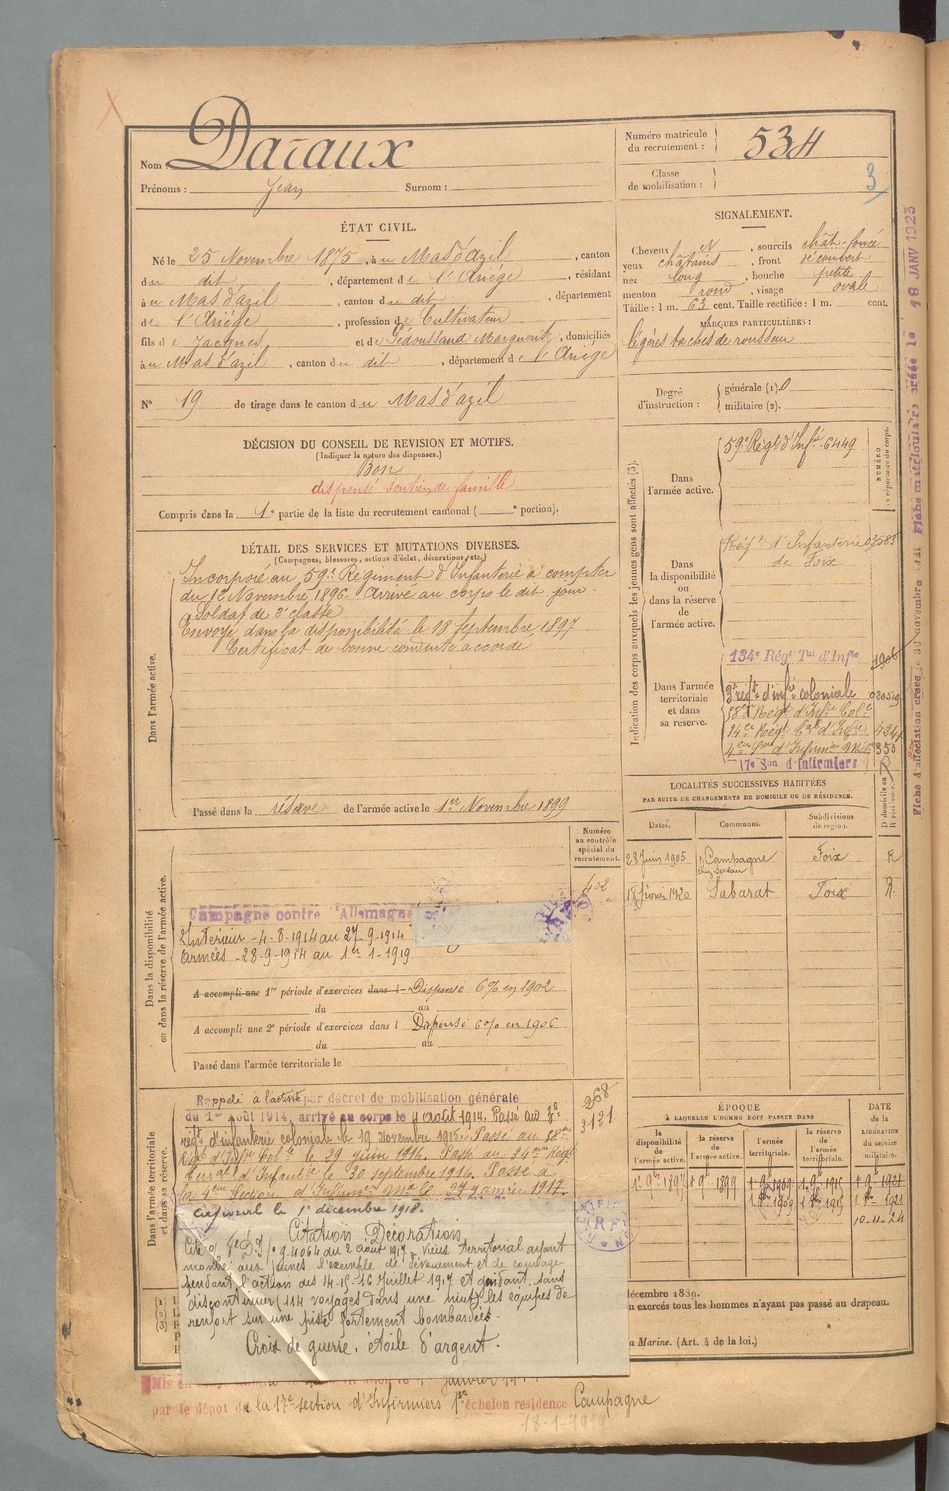 Nom : Daraux
Prénoms : Jean Surnom :
Numéro matricule du recrutement : 534
Classe de mobilisation :
3
ÉTAT CIVIL.
Né le 25 Novembre 1875, à u Mas d'azil, canton
d u dit, département d e l'Ariège, résidant
à u Mas d'azil, canton d u dit, département
d e l'Ariège, profession d e Cultivateur
fils d e Jacques et d e Gédoussaud Marguerite, domiciliés
à u Mas d'azil, canton d u dit, département d e l'Ariège
N° 19 de tirage dans le canton d u Mas d'azil
SIGNALEMENT.
Cheveux N, sourcils chât-foncé
yeux châtains, front découvert
nez long, bouche petite
menton rond, visage ovale
Taille : 1 m. 63 cent. Taille rectifiée : 1 m. cent.
MARQUES PARTICULIÈRES :
légères taches de rousseur
Degré d'instruction : générale (1). militaire (2).
DÉCISION DU CONSEIL DE REVISION ET MOTIFS.
(Indiquer la nature des dispenses.)
Bon
dispensé soutien de famille
Compris dans la 1e partie de la liste du recrutement cantonal ( e portion).
DÉTAIL DES SERVICES ET MUTATIONS DIVERSES.
(Campagnes, blessures, actions d'éclat, décorations, etc.)
Dans l'armée active.
Incorporé au 59e Régiment d'Infanterie à compter
du 1er Novembre 1896. Arrivé au corps le dit jour.
Soldat de 2e classe
Envoyé dans la disponibilité le 18 Septembre 1897
Certificat de bonne conduite accordé
Passé dans la réserve de l'armée active le 1er Novembre 1899
Indication des corps auxquels les jeunes gens sont affectés (3).
Dans l'armée active.
59e Régt d'Infie 6449
NUMÉRO
Dans la disponibilité ou dans la réserve de l'armée active.
Régt d'Infanterie
de Foix
Dans l'armée territoriale et dans sa réserve.
134e Régt Tal d'Infie
3e régt d'infie coloniale
58e Régt d'Infie Colle
34e Régt Cal d'Infie
17e Son d'Infirmiers
LOCALITÉS SUCCESSIVES HABITÉES
PAR SUITE DE CHANGEMENTS DE DOMICILE OU DE RÉSIDENCE.
Dates. Communes. Subdivisions de région. D domicile ou R résidence.
28 Juin 1905 Campagne Foix R
18 février 1920 Sabarat Foix R
Dans la disponibilité ou dans la réserve de l'armée active.
Numéro au contrôle spécial du recrutement.
402
Campagne contre l'Allemagne
Intérieur - 4-8-1914 au 27-9-1914
Armées - 28-9-1914 au 1er-1-1919
A accompli une 1re période d'exercices dans l Dispensé 6% en 1902
du au
A accompli une 2e période d'exercices dans l Dispensé 6% en 1906
du au
Passé dans l'armée territoriale le
Dans l'armée territoriale et dans sa réserve.
268
3121
Rappelé à l'activité par décret de mobilisation générale
du 1er Août 1914, arrivé au corps le 4 août 1914. Passé au 3e
régt d'infanterie coloniale le 19 novembre 1915. Passé au 58e
Régt d'Infie Colle le 29 juin 1916. Passé au 34e Régt
d'Infanterie le 30 septembre 1916. Passé à
la 4e Section d'Infirmiers Mres le 27 janvier 1917.
1er décembre 1918.
Citation Décoration
Cité o/ Ge D.I/ n° 9.4064 du 2 août 1917 - Vieux territorial ayant
montré aux jeunes l'exemple de dévouement et de courage
pendant l'action des 14-15-16 Juillet 1917 et pendant sans
discontinuer (114 voyages dans une nuit) les équipes de
renfort sur une piste fortement bombardée.
Croix de guerre, étoile d'argent.
ÉPOQUE
À LAQUELLE L'HOMME DOIT PASSER DANS
la disponibilité de l'armée active. la réserve de l'armée active. l'armée territoriale. la réserve de l'armée territoriale.
DATE de la LIBÉRATION du service militaire.
1 9bre 1897 1 9bre 1899 1 9bre 1909 1 9bre 1915 1 9bre 1921
10-11-24
décembre 1889.
ou exercés tous les hommes n'ayant pas passé au drapeau.
Marine. (Art. 4 de la loi.)
Mis en janvier
par le dépôt de la 17e section d'Infirmiers 1er échelon résidence Campagne
18-1-1919
Fiche matriculaire créée le 18 JANV 1923
Fiche d'affectation créée le 30 novembre